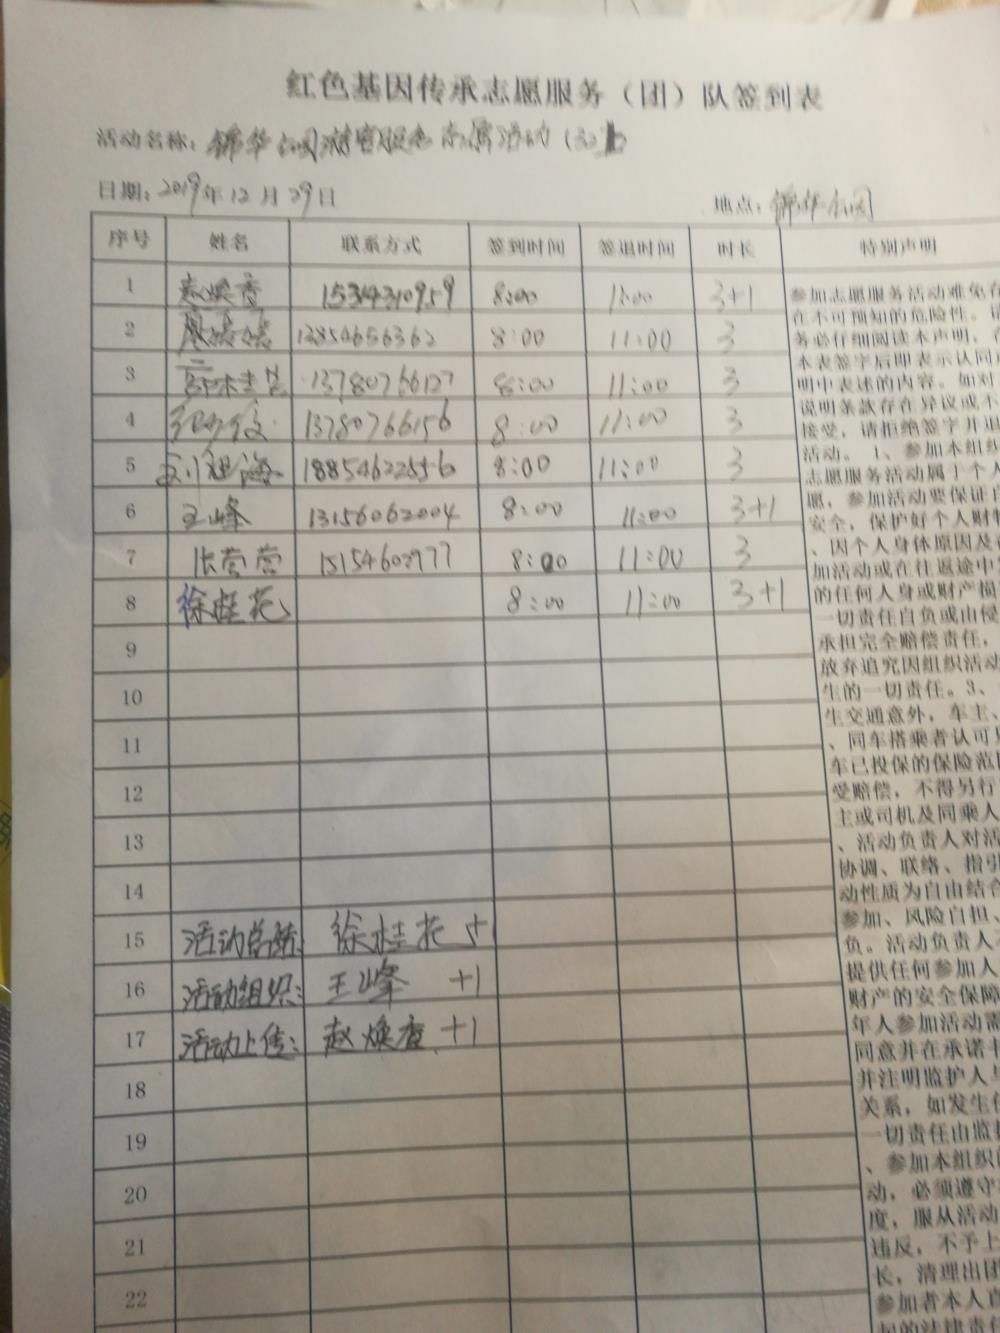 红色基因传承志愿服务（团）队签到表
活动名称：锦华公园游客服务志愿活动
日期：2019年12月29日 地点：锦华公园
序号 姓名 联系方式 签到时间 签退时间 时长 特别声明
1 赵焕香 15314310959 8:00 11:00 3+1
2 13854656362 8:00 11:00 3
3 13780766127 8:00 11:00 3
4 13780766156 8:00 11:00 3
5 刘旭海 18854622556 8:00 11:00 3
6 王峰 13156062004 8:00 11:00 3+1
7 张营营 15154602977 8:00 11:00 3
8 徐桂花 8:00 11:00 3+1
9
10
11
12
13
14
15 活动总结: 徐桂花 +
16 活动组织: 王峰 +1
17 活动上传: 赵焕香 +1
18
19
20
21
22
参加志愿服务活动难免存
在不可预知的危险性。请
务必仔细阅读本声明，
本表签字后即表示认同
明中表述的内容。如对
说明条款存在异议或不
接受，请拒绝签字并退
活动。1、参加本组织
志愿服务活动属于个人
愿，参加活动要保证自
安全，保护好个人财物
、因个人身体原因及
加活动或在往返途中
的任何人身或财产损
一切责任自负或由侵
承担完全赔偿责任，
放弃追究因组织活动
生的一切责任。3、
生交通意外，车主、
、同车搭乘者认可
车已投保的保险范围
受赔偿，不得另行
主或司机及同乘人
、活动负责人对活
协调、联络、指引
动性质为自由结合
参加、风险自担、
负。活动负责人
提供任何参加人
财产的安全保障
年人参加活动需
同意并在承诺书
并注明监护人与
关系，如发生任
一切责任由监护
、参加本组织
动，必须遵守
度，服从活动
违反，不予上
长，清理出团
参加者本人直
起的法律责任